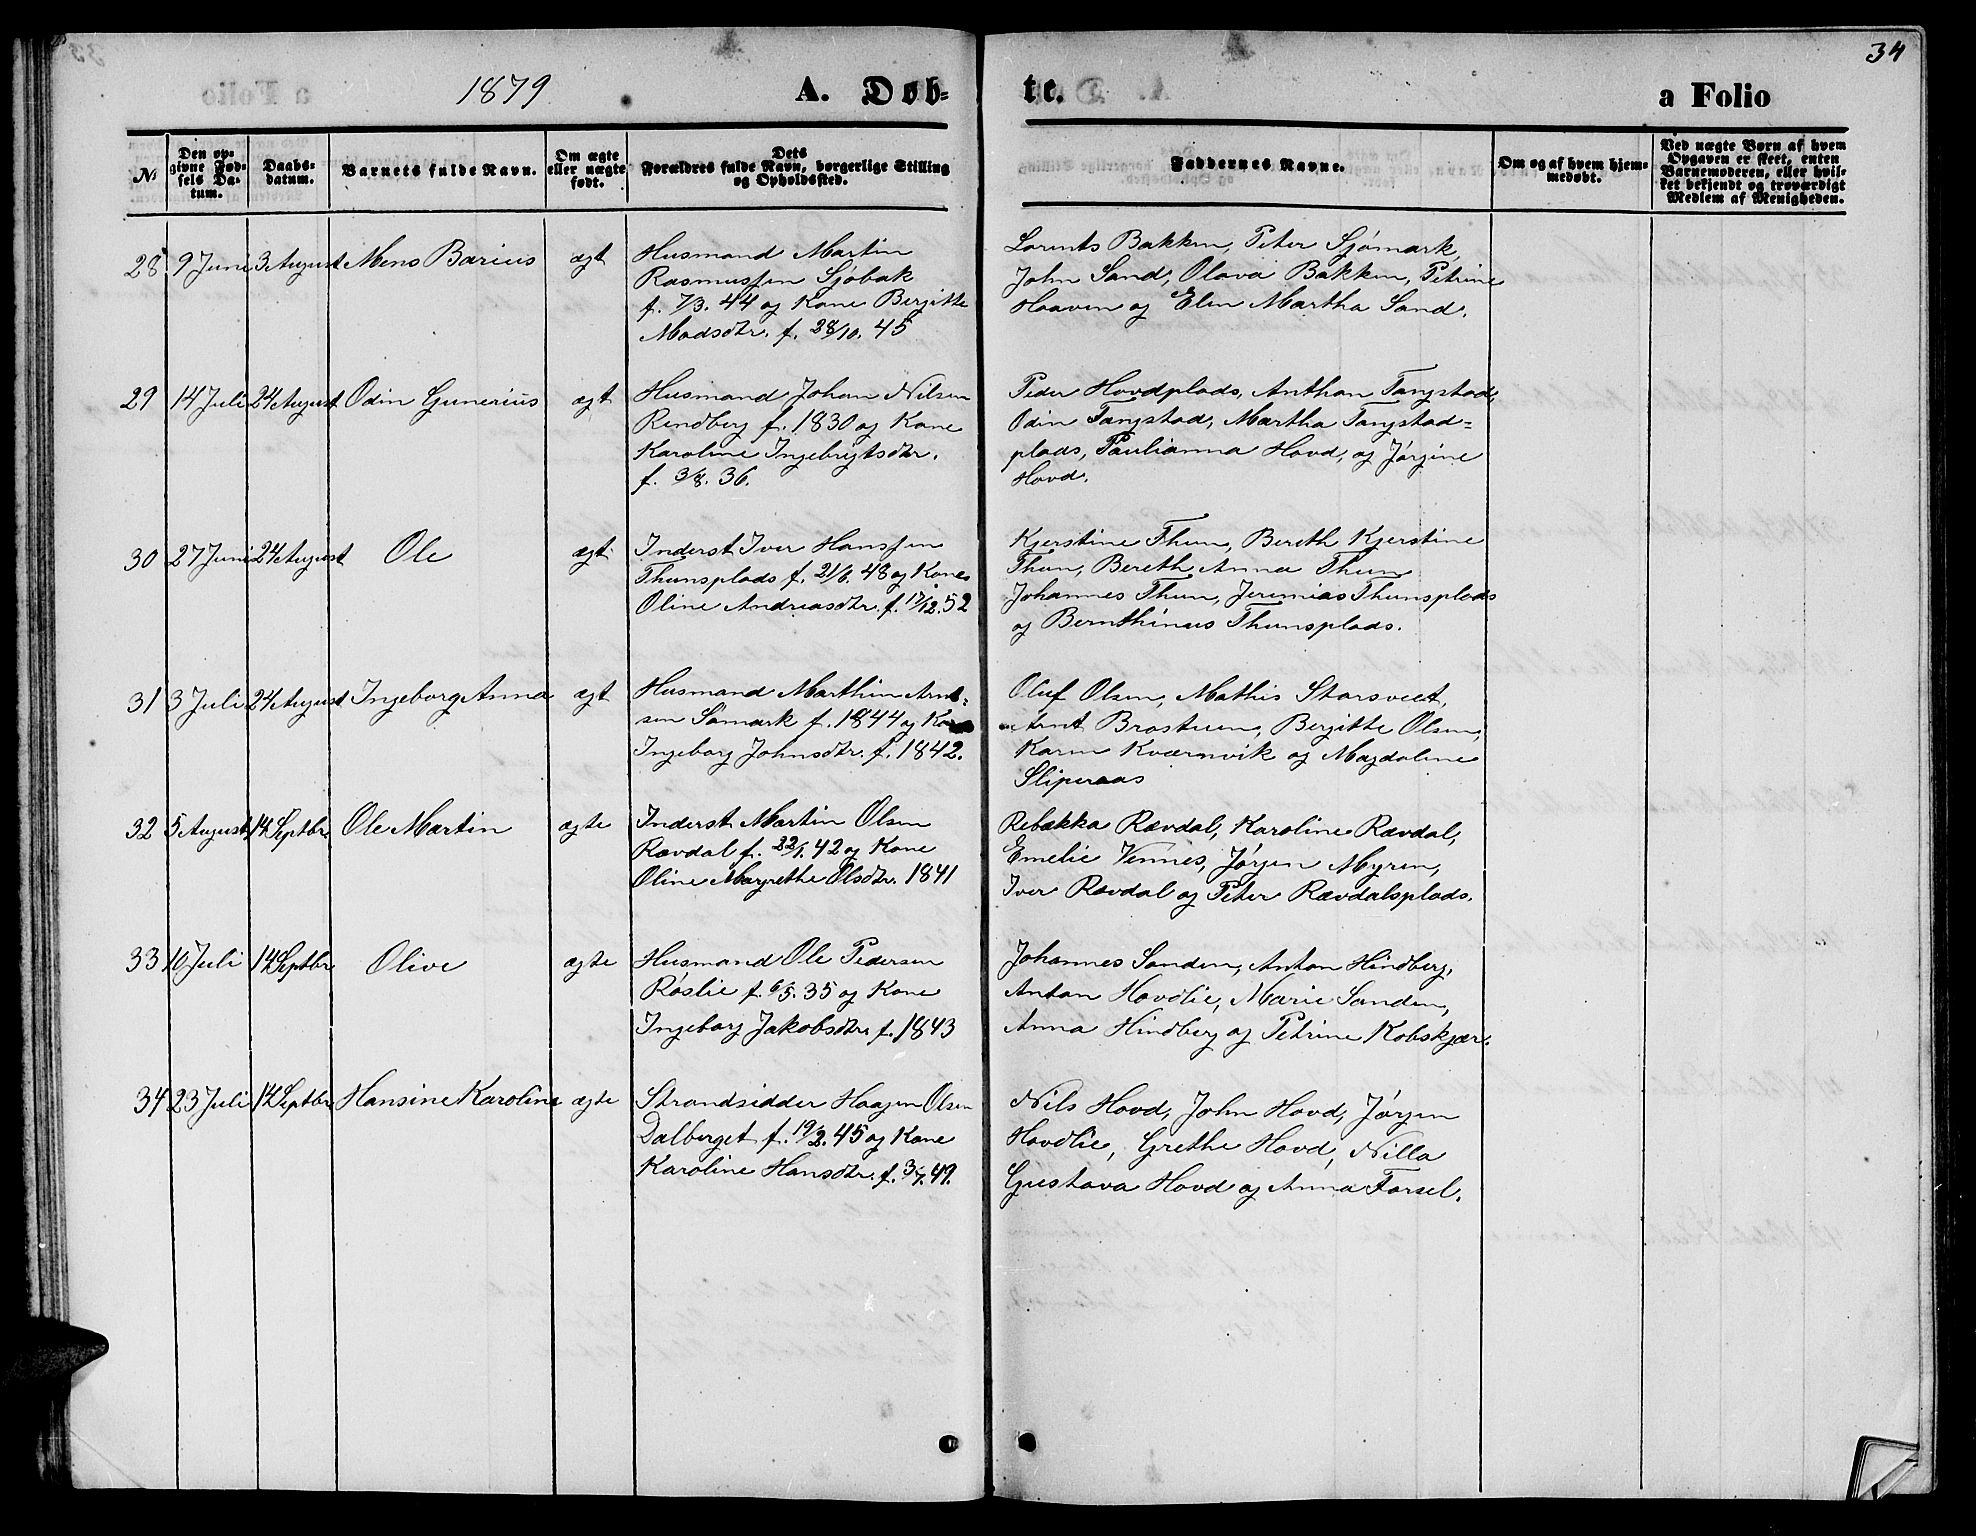 34
1879
A. Døb-
te.
a Folio
No
Den op-
givne Fød-
sels Da-
tum.
Daabs-
datum.
Barnets fulde Navn.
Om ægte
eller uægte
født.
Dets
Forældres fulde Navn, borgerlige Stilling
og Opholdssted.
Faddernes Navne.
Om og af hvem hjem-
medøbt.
Ved uægte Børn af hvem
Opgaven er skeet, enten
Barnemoderen, eller hvil-
ket bekjendt og troværdigt
Medlem af Menigheden.
28 9 Juni 3 August Mens Barius ægt
Husmand Martin
Rasmussen Sjøbak
f. 7/3. 44 og Kone Bergitte
Madsdtr. f. 28/10. 45
Lorents Bakken, Peter Sjømark,
John Sand, Olava Bakken, Petrine
Haaven og Elen Martha Sand.
29 14 Juli 24 August Odin Gunerius ægt
Husmand Johan Nilsen
Rendberg f. 1830 og Kone
Karoline Ingebrigtsdtr.
f. 3/8. 36.
Peder Hovdplads, Anthon Tangstad,
Odin Tangstad, Martha Tangstad=
plads, Paulianna Hovd, og Jørgine
Hovd.
30 27 Juni 24 August Ole ægt
Inderst Iver Hanssen
Thunsplads f. 21/6. 48 og Kone
Oline Andreasdtr. f. 17/12. 52
Kjerstine Thun, Bereth Kjerstine
Thun, Bereth Anna Thun
Johannes Thun, Jeremias Thunsplads
og Bernthinus Thunsplads.
31 3 Juli 24 August Ingeborg Anna ægt
Husmand Marthin Arnt=
sen Samark f. 1844 og Kone
Ingeborg Johnsdtr. f. 1842.
Oluf Olsen, Mathis Storsveet,
Arnt Brostuen, Bergitte Olsen,
Karen Kværnvik og Magdalene
Sliperaas
32 5 August 14 Septbr Ole Martin ægte
Inderst Martin Olsen
Rævdal f. 22/1. 42 og Kone
Oline Margrethe Olsdtr. 1841
Rebækka Rævdal, Karoline Rævdal,
Emelie Vennes, Jørgen Myren,
Iver Rævdal og Peter Rævdalsplads.
33 10 Juli 14 Septbr Olive ægte
Husmand Ole Pedersen
Røslie f. 6/5. 35 og Kone
Ingeborg Jakobsdtr. f. 1843
Johannes Sanden, Anton Hindberg,
Anton Hovdlie, Marie Sanden,
Anna Hindberg og Petrine Kobskjær.
34 23 Juli 14 Septbr Hansine Karoline ægte
Strandsidder Haagen Olsen
Dalberget f. 19/2. 45 og Kone
Karoline Hansdtr. f. 3/7. 49.
Nils Hovd, John Hovd, Jørgen
Hovdlie, Grethe Hovd, Nilla
Gustava Hovd og Anna Forsel.